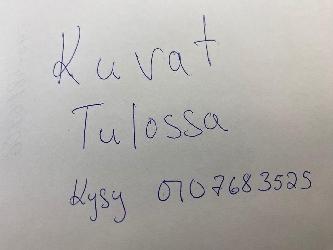 Kuvat
Tulossa
Kysy 0107683525